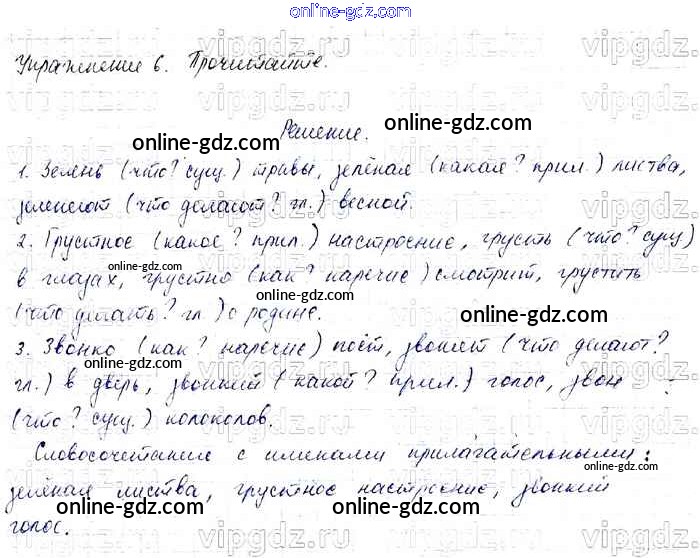 online-gdz.com
Упражнение 6. Прочитайте.
Решение.
online-gdz.com
1. Зелень (что? сущ.) травы, зелёная (какая? прил.) листва,
зеленеют (что делают? гл.) весной.
online-gdz.com
2. Грустное (какое? прил.) настроение, грусть (что? сущ)
в глазах, грустно (как? наречие) смотрит, грустить
online-gdz.com
(что делать? гл) о родине.
online-gdz.com
3. Звонко (как? наречие) поёт, звонят (что делают?
online-gdz.com
гл.) в дверь, звонкий (какой? прил.) голос, звон
(что? сущ.) колоколов.
online-gdz.com
Словосочетание с именами прилагательными:
online-gdz.com
зелёная листва, грустное настроение, звонкий
голос.
online-gdz.com
vipgdz.ru
vipgdz.ru
vipgdz.ru
vipgdz.ru